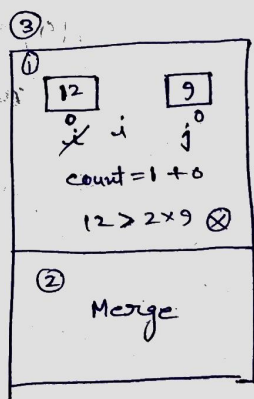 ③
①
12 9
0 0
i i j
count = 1 + 0
12 > 2 × 9 ⊗
②
Merge